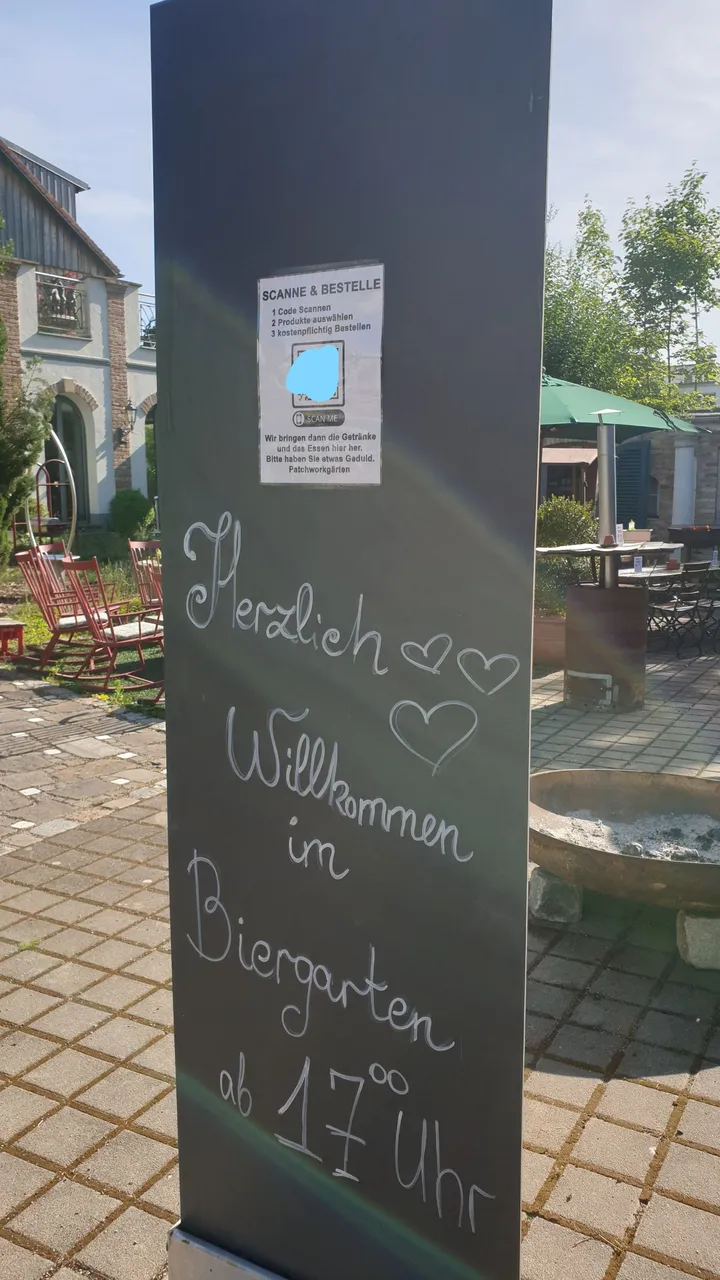 SCANNE & BESTELLE
1 Code Scannen
2 Produkte auswählen
3 kostenpflichtig Bestellen
SCAN ME
Wir bringen dann die Getränke
und das Essen hier her.
Bitte haben Sie etwas Geduld.
Patchworkgärten
Herzlich
Willkommen
im
Biergarten
ab 17⁰⁰ Uhr